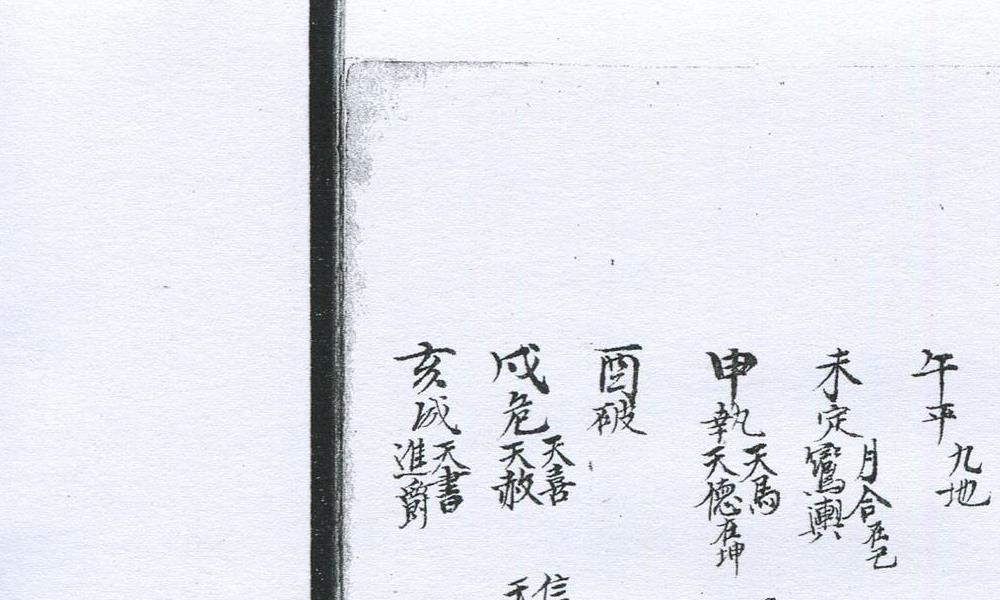 午平
九地
未定
月合在己
鸞輿
申執
天馬
天德在坤
酉破
戌危
天喜
天赦
信
天
亥成
天書
進爵